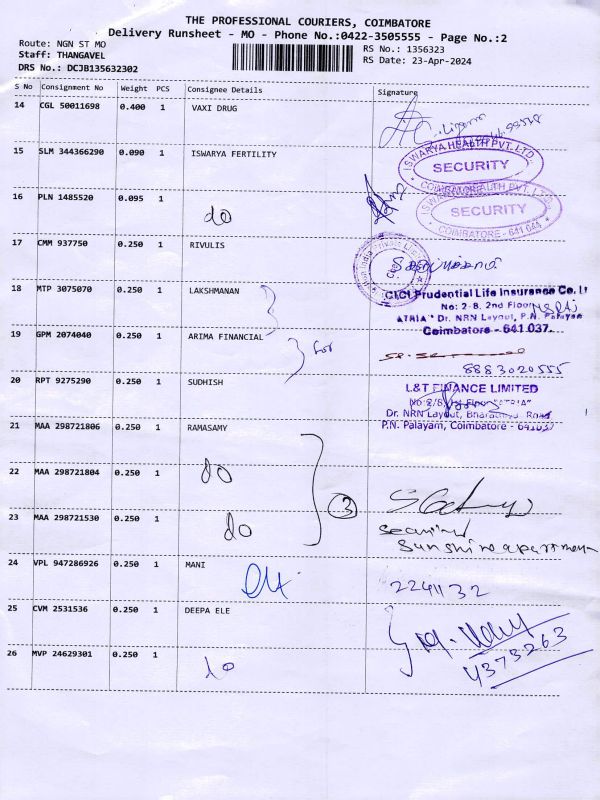 THE PROFESSIONAL COURIERS, COIMBATORE
Delivery Runsheet - MO - Phone No.:0422-3505555 - Page No.:2
Route: NGN ST MO
RS No.: 1356323
Staff: THANGAVEL
RS Date: 23-Apr-2024
DRS No.: DCJB135632302
S No Consignment No Weight PCS Consignee Details Signature
14 CGL 50011698 0.400 1 VAXI DRUG
15 SLM 344366290 0.090 1 ISWARYA FERTILITY
ISWARYA HEALTH PVT. LTD.
SECURITY
COIMBATORE
16 PLN 1485520 0.095 1 do
ISWARYA HEALTH PVT. LTD.
SECURITY
COIMBATORE - 641 044
17 CMM 937750 0.250 1 RIVULIS
18 MTP 3075070 0.250 1 LAKSHMANAN
ICICI Prudential Life Insurance Co. Lt
No: 2-B, 2nd Floor
ATRIA" Dr. NRN Layout, P.N. Palayam
Coimbatore - 641 037.
19 GPM 2074040 0.250 1 ARIMA FINANCIAL
for
8883020555
20 RPT 9275290 0.250 1 SUDHISH
L&T FINANCE LIMITED
No 2/B, 1st Floor "ATRIA"
Dr. NRN Layout, Bharathiyar Road
P.N. Palayam, Coimbatore - 641037
21 MAA 298721806 0.250 1 RAMASAMY
22 MAA 298721804 0.250 1 do
3
23 MAA 298721530 0.250 1 do
security
Sunshine apartment
24 VPL 947286926 0.250 1 MANI
2241132
25 CVM 2531536 0.250 1 DEEPA ELE
4373263
26 MVP 24629301 0.250 1 do